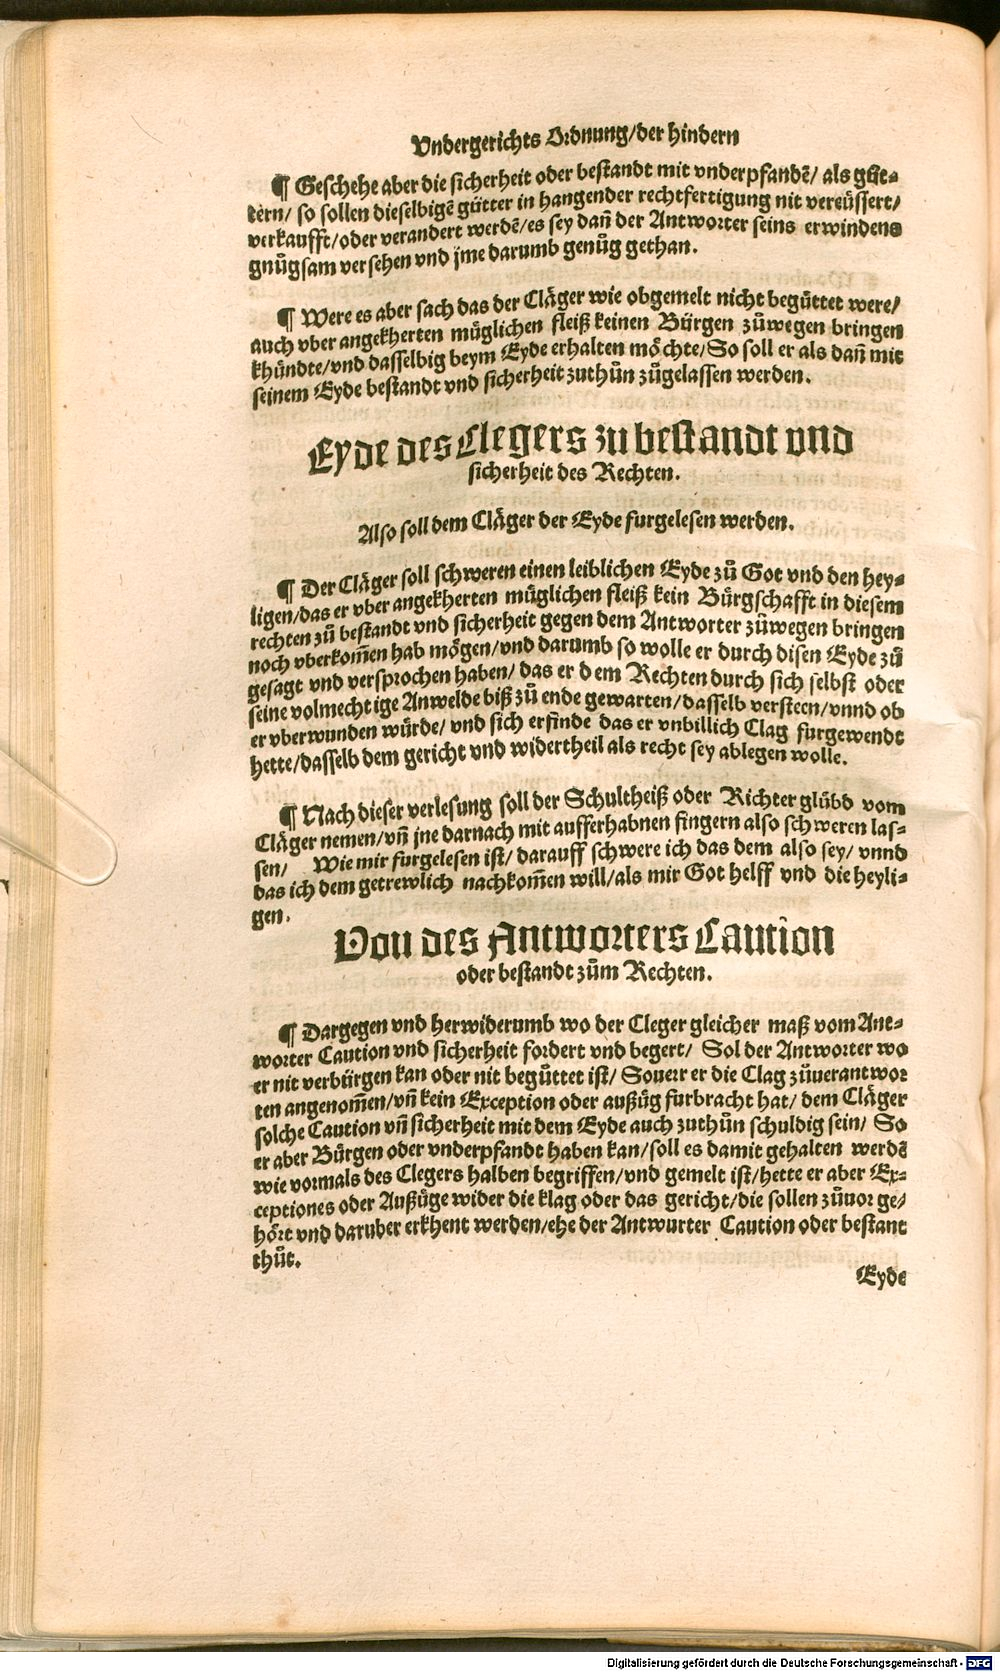 Vndergerichts Ordnung/der hindern
¶ Geschehe aber die sicherheit oder bestandt mit vnderpfandē/ als guͤt-
tern/ so sollen dieselbigē guͤtter in hangender rechtfertigung nit vereuͤssert/
verkaufft/oder verandert werdē/es sey dañ der Antworter seins erwindens
gnuͦgsam versehen vnd jme darumb genuͦg gethan.
¶ Were es aber sach das der Claͤger wie obgemelt nicht beguͤttet were/
auch vber angekherten muͤglichen fleiß keinen Buͤrgen zuͦwegen bringen
khuͤndte/vnd dasselbig beym Eyde erhalten moͤchte/So soll er als dañ mit
seinem Eyde bestandt vnd sicherheit zuthuͦn zuͦgelassen werden.
Eyde des Clegers zu bestandt vnd
sicherheit des Rechten.
Also soll dem Claͤger der Eyde furgelesen werden.
¶ Der Claͤger soll schweren einen leiblichen Eyde zuͦ Got vnd den hey-
ligen/das er vber angekherten muͤglichen fleiß kein Buͤrgschafft in diesem
rechten zuͦ bestandt vnd sicherheit gegen dem Antworter zuͦwegen bringen
noch vberkom̃en hab moͤgen/vnd darumb so wolle er durch disen Eyde zuͦ
gesagt vnd versprochen haben/ das er dem Rechten durch sich selbst oder
seine volmechtige Anwelde biß zuͦ ende gewarten/dasselb versteen/vnnd ob
er vberwunden wuͤrde/ vnd sich erfinde das er vnbillich Clag furgewendt
hette/dasselb dem gericht vnd widertheil als recht sey ablegen wolle.
¶ Nach dieser verlesung soll der Schultheiß oder Richter gluͤbd vom
Claͤger nemen/vñ jne darnach mit aufferhabnen fingern also schweren las-
sen/ Wie mir furgelesen ist/ darauff schwere ich das dem also sey/ vnnd
das ich dem getrewlich nachkom̃en will/als mir Got helff vnd die heyli-
gen.
Von des Antworters Caution
oder bestandt zuͦm Rechten.
¶ Dargegen vnd herwiderumb wo der Cleger gleicher maß vom Ant-
worter Caution vnd sicherheit fordert vnd begert/ Sol der Antworter wo
er nit verbuͤrgen kan oder nit beguͤttet ist/ Souerr er die Clag zuͦuerantwor
ten angenom̃en/vñ kein Exception oder außzuͤg furbracht hat/ dem Claͤger
solche Caution vñ sicherheit mit dem Eyde auch zuthuͦn schuldig sein/ So
er aber Buͤrgen oder vnderpfandt haben kan/soll es damit gehalten werdē
wie vormals des Clegers halben begriffen/vnd gemelt ist/hette er aber Ex-
ceptiones oder Außzuͤge wider die klag oder das gericht/die sollen zuͦuor ge/
hoͤrt vnd daruber erkhent werden/ehe der Antwurter Caution oder bestant
thuͦt.
Eyde
Digitalisierung gefördert durch die Deutsche Forschungsgemeinschaft - DFG